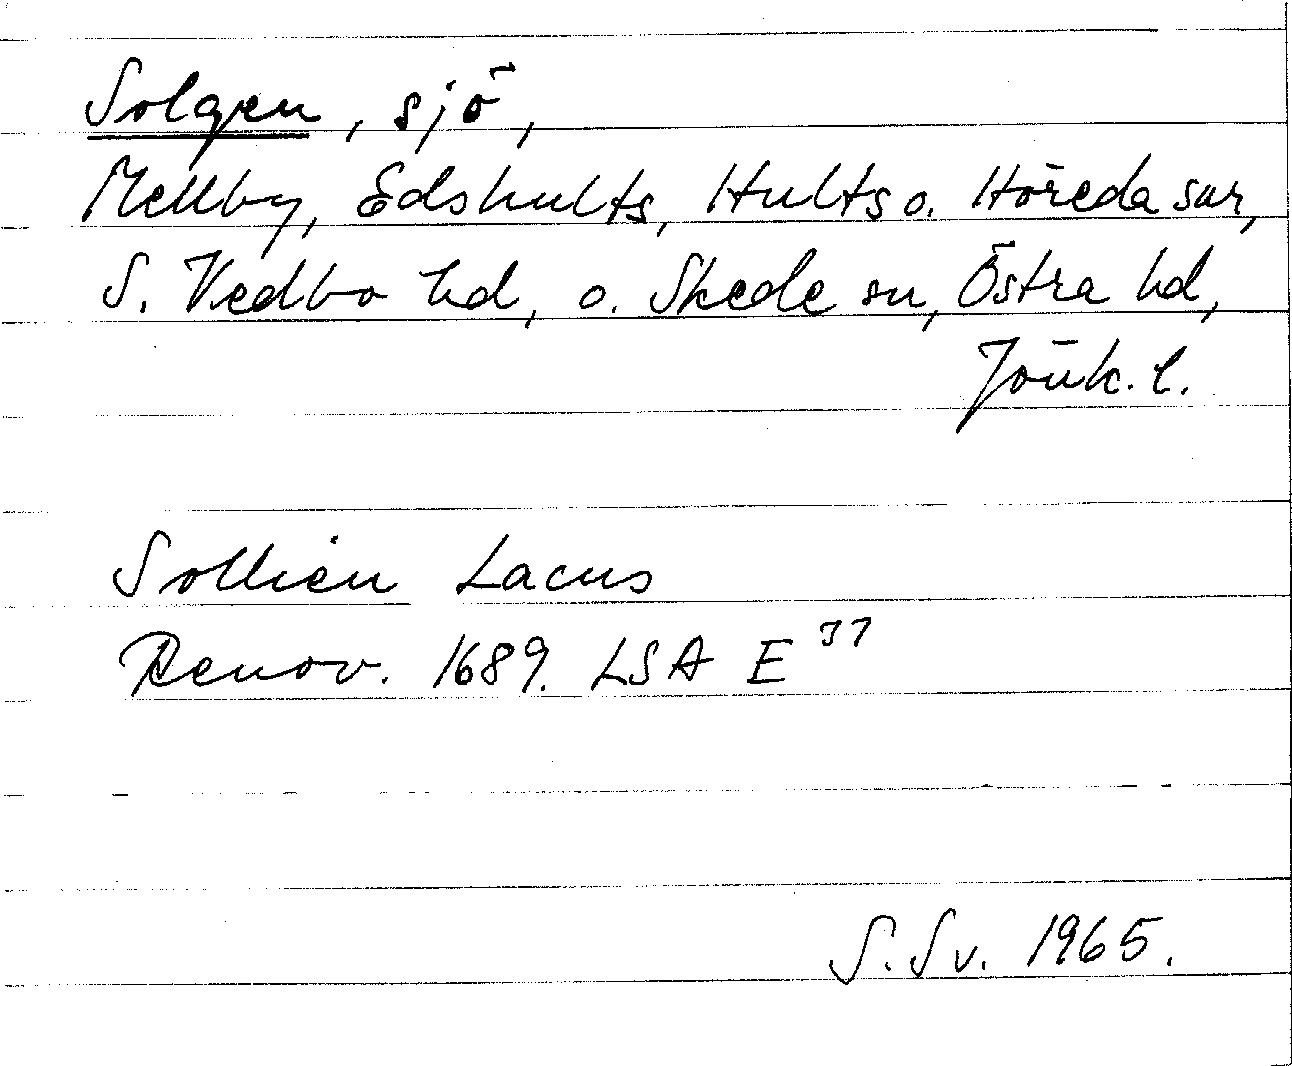 Solgen, sjö,
Mellby, Edshults, Hults o. Höreda snr,
S. Vedbo hd, o. Skede sn, Östra hd,
Jönk. l.
Sollien Lacus
Renov. 1689. LSA E 37
S. Sv. 1965.